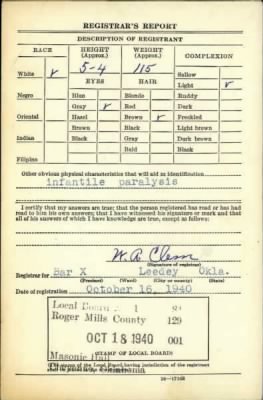 REGISTRAR'S REPORT
DESCRIPTION OF REGISTRANT
RACE HEIGHT (Approx.) WEIGHT (Approx.) COMPLEXION
5-4 115
White ✓ Sallow
EYES HAIR Light ✓
Negro Blue Blonde Ruddy
Gray ✓ Red Dark
Oriental Hazel Brown ✓ Freckled
Brown Black Light brown
Indian Black Gray Dark brown
Bald Black
Filipino
Other obvious physical characteristics that will aid in identification
infantile paralysis
I certify that my answers are true; that the person registered has read or has had
read to him his own answers; that I have witnessed his signature or mark and that
all of his answers of which I have knowledge are true, except as follows:
(Signature of registrar)
Registrar for Bar X Leedey Okla.
(Precinct) (Ward) (City or county) (State)
Date of registration October 16, 1940
Local 1
Roger Mills County 129
OCT 18 1940 001
Masonic Hall
(STAMP OF LOCAL BOARD)
(The stamp of the Local Board having jurisdiction of the registrant